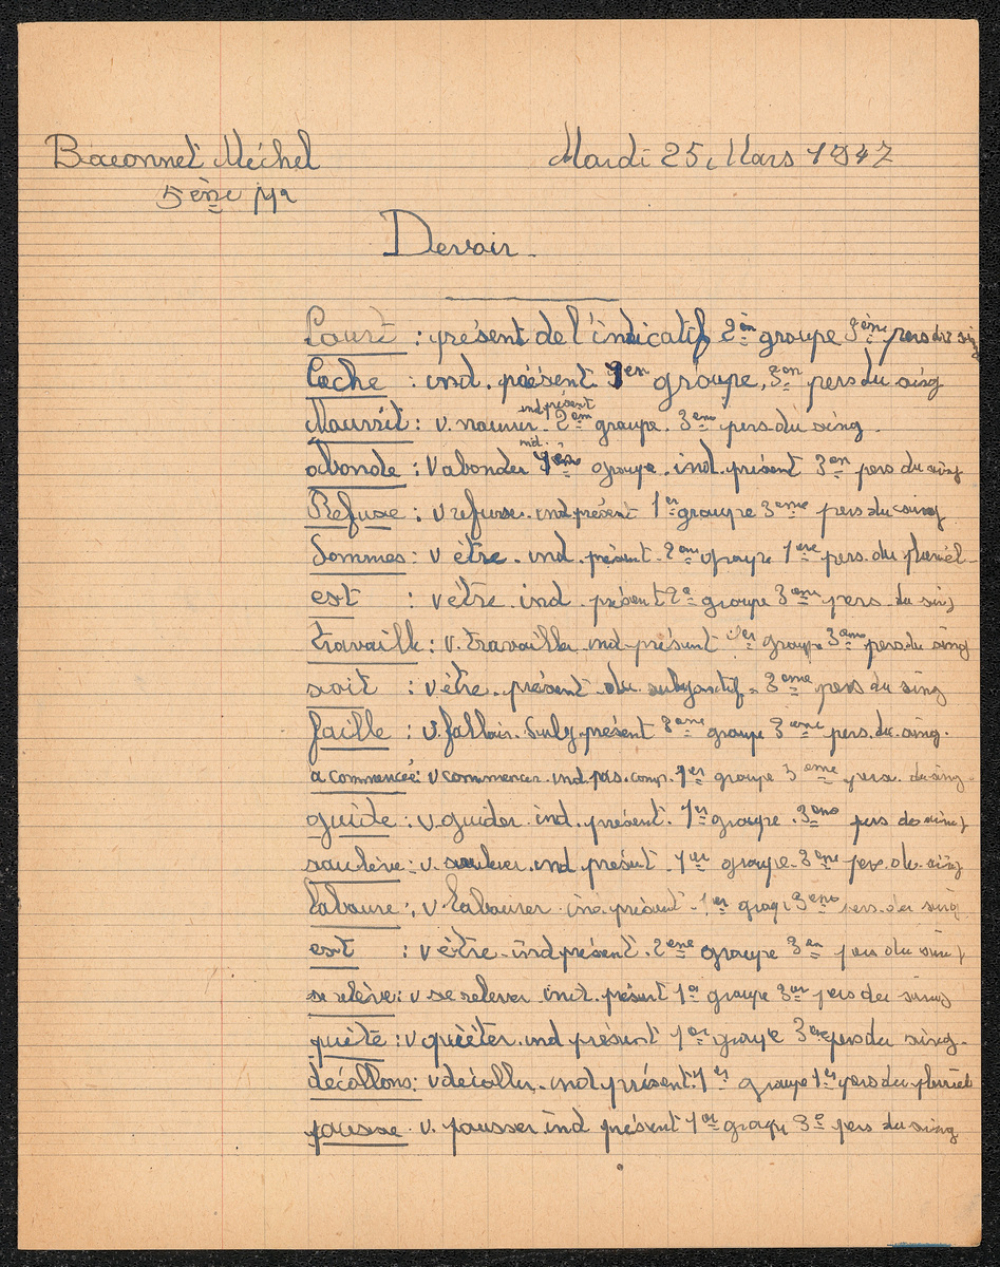 Baconnet Michel Mardi 25 Mars 1947
5ème M2
Devoir.
Court : présent de l'indicatif 2èm groupe 3ème pers du sing
Cache : ind. présent 1er groupe, 3em pers du sing
Nourrit : v. nourrir ind présent 2em groupe. 3eme pers du sing.
abonde : v abonder ind. 1er groupe. ind. présent 3em pers du sing
Refuse : v refuser. ind présent 1er groupe 3eme pers du sing
Sommes : v être. ind. présent. 2eme groupe 1ere pers. du pluriel.
est : v être. ind. présent 2e groupe 3eme pers. du sing
travaille : v. travailler ind présent 1er groupe 3eme pers du sing
soit : v être. présent du subjontif. 3eme pers du sing
faille : v. falloir. Subj. présent 3eme groupe 3eme pers. du. sing.
a commencée : v commencer. ind. pas. comp. 1er groupe 3eme pers. du sing.
guide : v guider. ind. présent. 1er groupe. 3eme pers du sing
soulève : v. soulever. ind présent. 1er groupe. 3eme pers. du. sing
Laboure : v Labourer ind. présent. 1er group 3eme pers. du sing
est : v être. ind présent. 2eme groupe 3em pers du sing
se relève : v se relever ind. présent 1er groupe 3em pers du sing
quête : v quêter. ind présent 1er groupe 3eme pers du sing.
décollons : v décoller. ind présent. 1er groupe 1er pers du pluriel
pousse. v. pousser ind présent 1er groupe 3e pers du sing